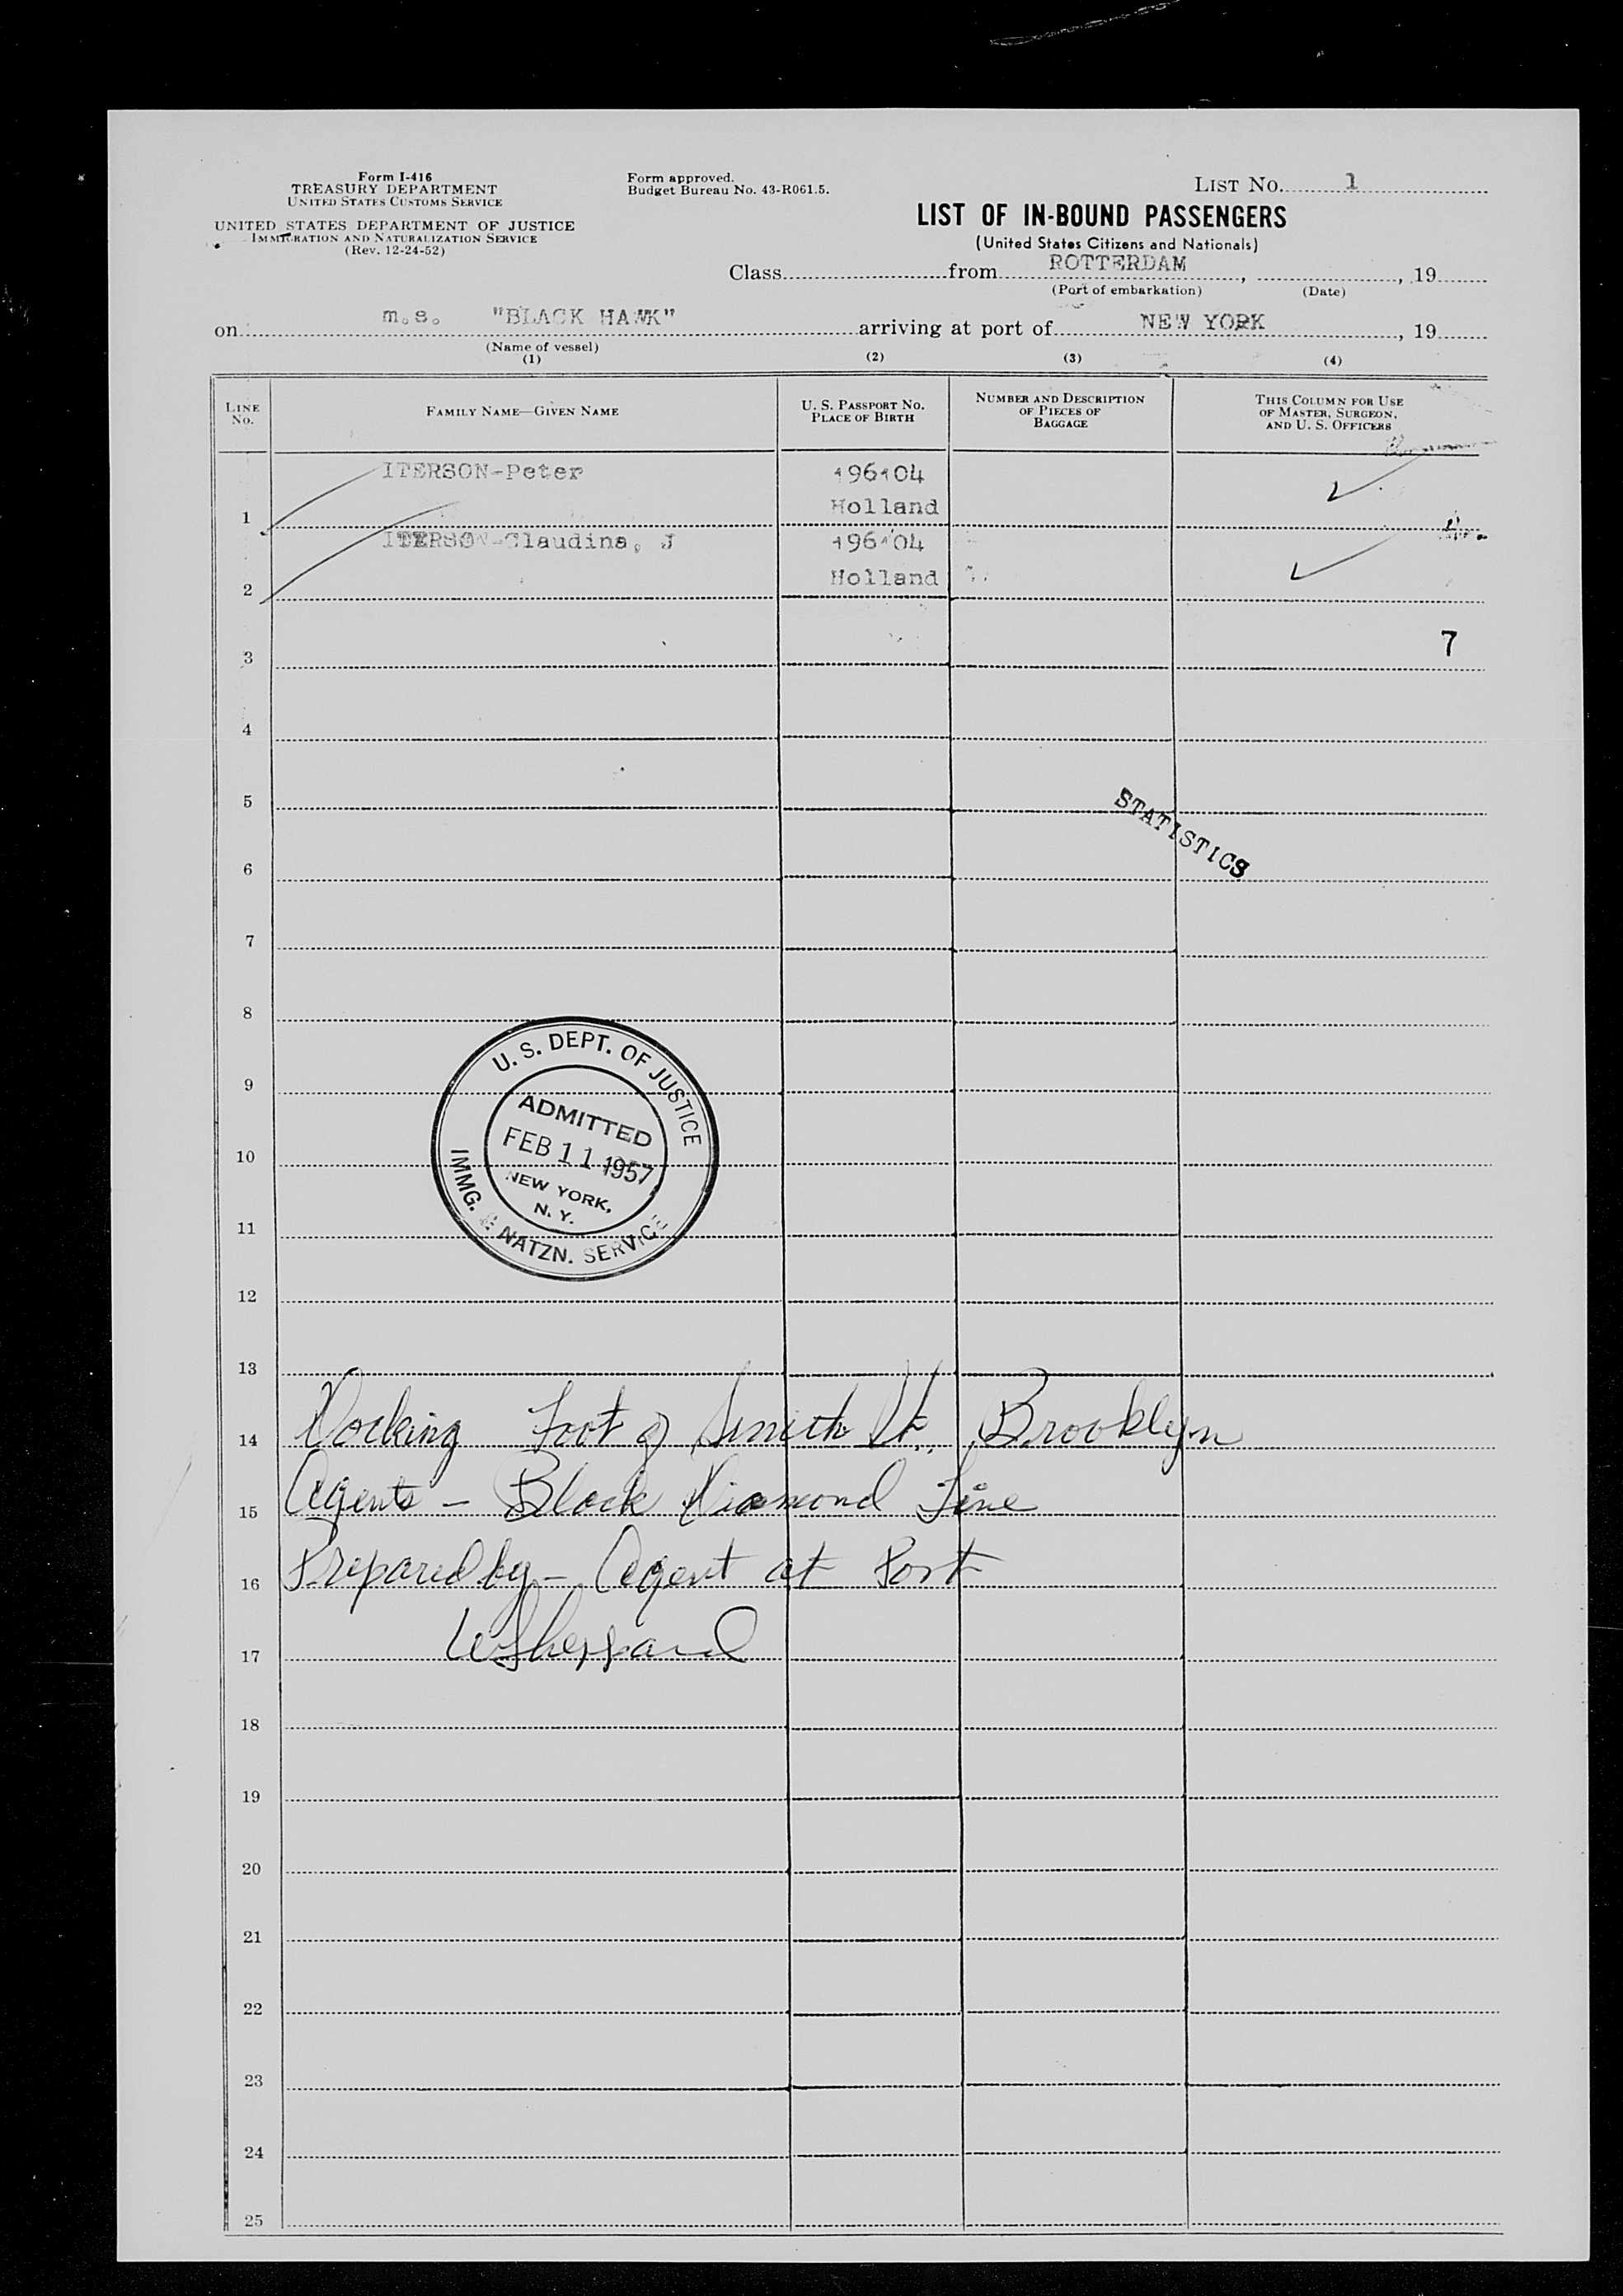 Form I-416
TREASURY DEPARTMENT
UNITED STATES CUSTOMS SERVICE
UNITED STATES DEPARTMENT OF JUSTICE
IMMIGRATION AND NATURALIZATION SERVICE
(Rev. 12-24-52)
Form approved.
Budget Bureau No. 43-R061.5.
LIST NO. 1
LIST OF IN-BOUND PASSENGERS
(United States Citizens and Nationals)
Class from ROTTERDAM, , 19
(Port of embarkation) (Date)
on m.s. "BLACK HAWK" arriving at port of NEW YORK, 19
(Name of vessel)
(1) (2) (3) (4)
LINE NO.
FAMILY NAME—GIVEN NAME
U. S. PASSPORT NO.
PLACE OF BIRTH
NUMBER AND DESCRIPTION
OF PIECES OF
BAGGAGE
THIS COLUMN FOR USE
OF MASTER, SURGEON,
AND U. S. OFFICERS
ITERSON-Peter 196104
1 Holland
ITERSON-Claudina, J 196104
2 Holland
3 7
4
5
STATISTICS
6
7
8
U. S. DEPT. OF JUSTICE
9
ADMITTED
FEB 11 1957
10
NEW YORK,
N. Y.
11
IMMG. & NATZN. SERVICE
12
13
14 Docking Foot of Smith St., Brooklyn
15 Agents - Black Diamond Line
16 Prepared by - Agent at Port
17 W Sheppard
18
19
20
21
22
23
24
25